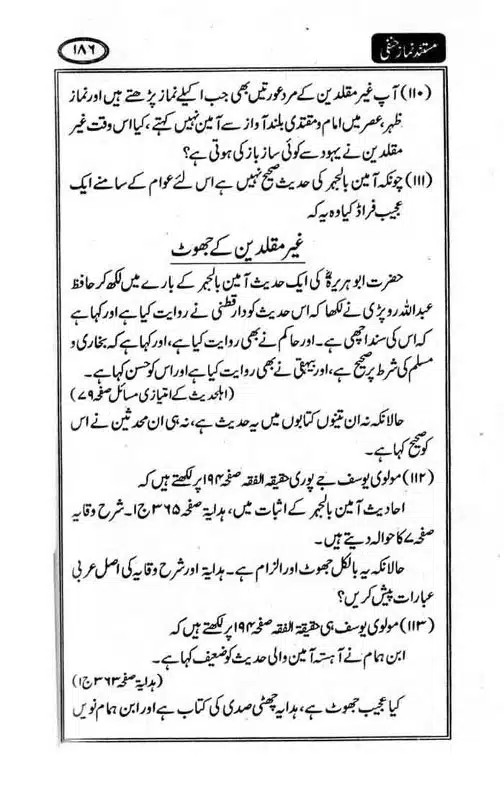 مستند نماز حنفی
۱۸۶
(۱۱۰) آپ غیر مقلدین کے مرد عورتیں بھی جب اکیلے نماز پڑھتے ہیں اور نماز
ظہر، عصر میں امام و مقتدی بلند آواز سے آمین نہیں کہتے، کیا اس وقت غیر
مقلدین نے یہود سے کوئی ساز باز کی ہوتی ہے؟
(۱۱۱) چونکہ آمین بالجہر کی حدیث صحیح نہیں ہے اس لئے عوام کے سامنے ایک
عجیب فراڈ کیا وہ یہ کہ
غیر مقلدین کے جھوٹ
حضرت ابو ہریرہؓ کی ایک حدیث آمین بالجہر کے بارے میں لکھ کر حافظ
عبداللہ روپڑی نے لکھا کہ اس حدیث کو دارقطنی نے روایت کیا ہے اور کہا ہے
کہ اس کی سند اچھی ہے۔ اور حاکم نے بھی روایت کیا ہے، اور کہا ہے کہ بخاری و
مسلم کی شرط پر صحیح ہے، اور بیہقی نے بھی روایت کیا ہے اور اس کو حسن کہا ہے۔
(اہلحدیث کے امتیازی مسائل صفحہ ۷۹)
حالانکہ نہ ان تینوں کتابوں میں یہ حدیث ہے، نہ ہی ان محدثین نے اس
کو صحیح کہا ہے۔
(۱۱۲) مولوی یوسف جے پوری حقیقۃ الفقہ صفحہ ۱۹۴ پر لکھتے ہیں کہ
احادیث آمین بالجہر کے اثبات میں، ہدایۃ صفحہ ۳۶۵ ج۱۔ شرح وقایہ
صفحہ ۷ کا حوالہ دیتے ہیں۔
حالانکہ یہ بالکل جھوٹ اور الزام ہے۔ ہدایۃ اور شرح وقایہ کی اصل عربی
عبارات پیش کریں؟
(۱۱۳) مولوی یوسف ہی حقیقۃ الفقہ صفحہ ۱۹۴ پر لکھتے ہیں کہ
ابن ہمام نے آہستہ آمین والی حدیث کو ضعیف کہا ہے۔
(ہدایۃ صفحہ ۳۶۳ ج۱)
کیا عجیب جھوٹ ہے، ہدایہ چھٹی صدی کی کتاب ہے اور ابن ہمام نویں